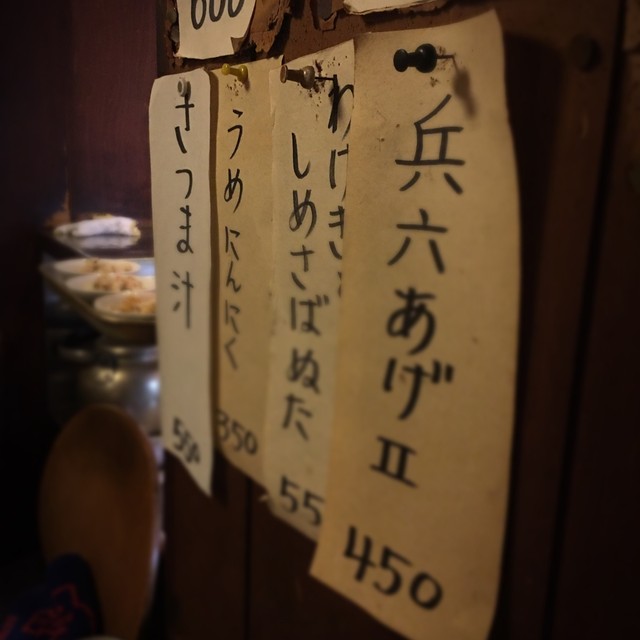 兵六あげⅡ
450
わけぎ
しめさばぬた
55
うめにんにく
350
さつま汁
550
600